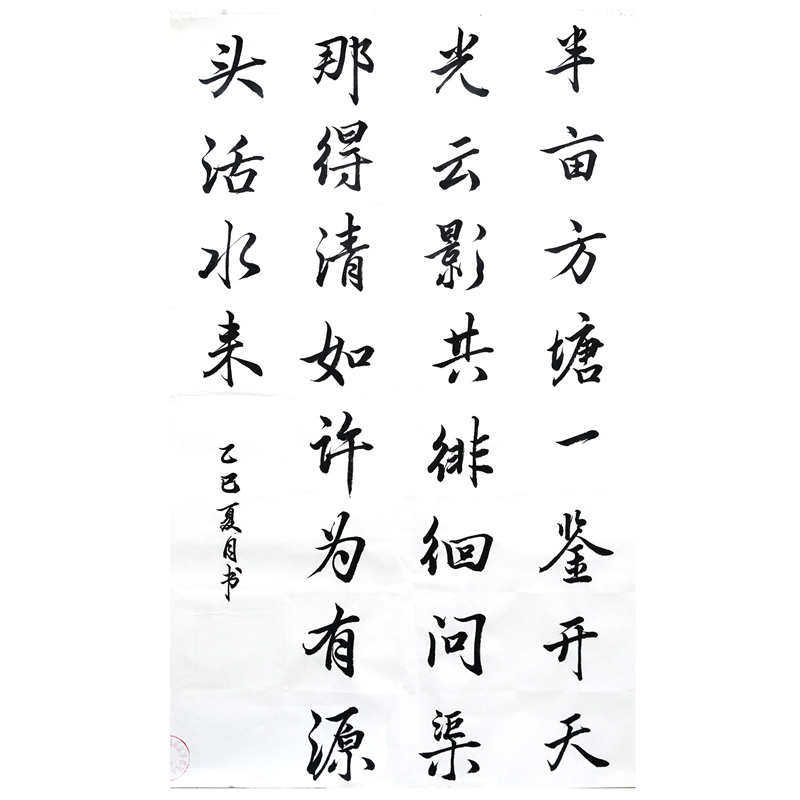 半亩方塘一鉴开天
光云影共徘徊问渠
那得清如许为有源
头活水来
乙巳夏月书